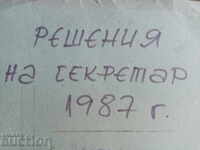 РЕШЕНИЯ
на СЕКРЕТАР
1987 г.